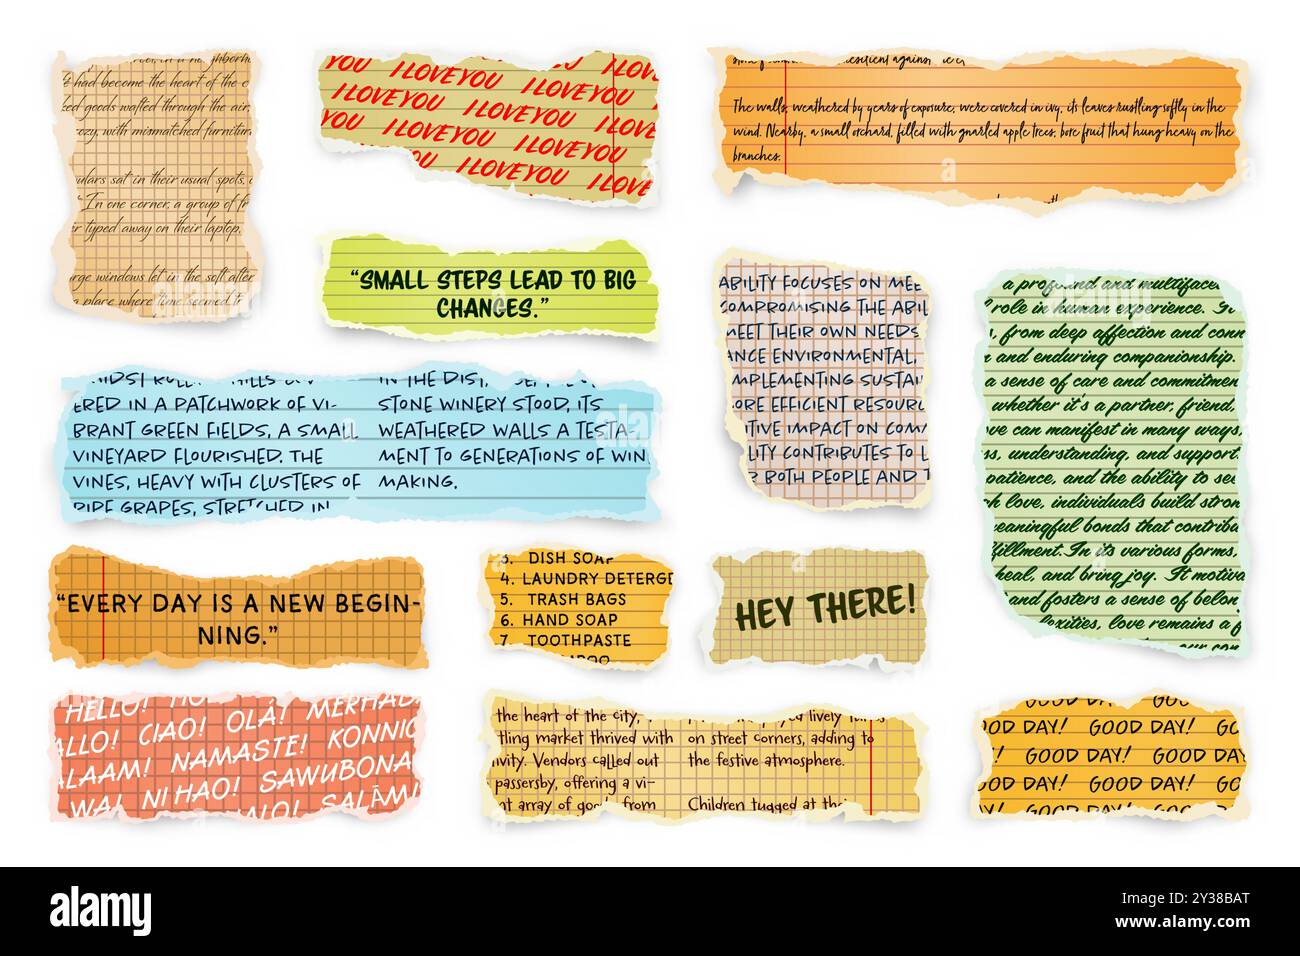 had become the heart of the
goods wafted through the air,
with mismatched
sat in their usual spots,
In one corner, a group of
typed away on their laptop,
windows let in the soft
a place where time seemed
YOU I LOVE YOU I LOVE YOU I LOV
I LOVE YOU I LOVE YOU I LOVE
YOU I LOVE YOU I LOVE YOU I LOVE
YOU I LOVE YOU I LOVE
resilient against
The walls, weathered by years of exposure, were covered in ivy, its leaves rustling softly in the
wind. Nearby, a small orchard, filled with gnarled apple trees, bore fruit that hung heavy on the
branches.
“SMALL STEPS LEAD TO BIG
CHANGES.”
ABILITY FOCUSES ON MEE
COMPROMISING THE ABIL
MEET THEIR OWN NEEDS
ANCE ENVIRONMENTAL,
MPLEMENTING SUSTAI
ORE EFFICIENT RESOURC
ITIVE IMPACT ON COM
LITY CONTRIBUTES TO L
BOTH PEOPLE AND
a profound and multiface
role in human experience.
from deep affection and conn
and enduring companionship.
a sense of care and commitmen
whether it's a partner, friend,
can manifest in many ways,
understanding, and support
patience, and the ability to see
love, individuals build stron
eaningful bonds that contribu
fillment. In its various forms,
heal, and bring joy. It motiva
and fosters a sense of belon
exities, love remains a
ERED IN A PATCHWORK OF VI-
BRANT GREEN FIELDS, A SMALL
VINEYARD FLOURISHED. THE
VINES, HEAVY WITH CLUSTERS OF
RIPE GRAPES, STRETCHED IN
IN THE DIST
STONE WINERY STOOD, ITS
WEATHERED WALLS A TESTA-
MENT TO GENERATIONS OF WIN
MAKING.
“EVERY DAY IS A NEW BEGIN-
NING.”
3. DISH SOAP
4. LAUNDRY DETERGE
5. TRASH BAGS
6. HAND SOAP
7 TOOTHPASTE
HEY THERE!
HELLO! MERHAB
ALLO! CIAO! OLÁ! KONNIC
ALAAM! NAMASTE! SAWUBONA
NI HAO! SALAM!
the heart of the city,
tling market thrived with
ivity. Vendors called out
passersby, offering a vi-
nt array of goods from
lively
on street corners, adding to
the festive atmosphere.
Children tugged at
GOOD DAY! GOOD DAY!
OOD DAY! GOOD DAY! GO
GOOD DAY! GOOD DAY!
OOD DAY! GOOD DAY! GO
Y! GOOD DAY! GOOD DAY!
alamy
Image ID: 2Y38BAT
www.alamy.com